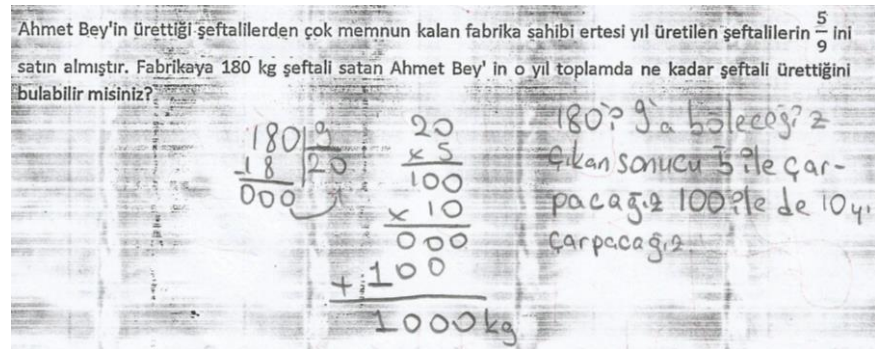 Ahmet Bey'in ürettiği şeftalilerden çok memnun kalan fabrika sahibi ertesi yıl üretilen şeftalilerin 5/9 ini
satın almıştır. Fabrikaya 180 kg şeftali satan Ahmet Bey' in o yıl toplamda ne kadar şeftali ürettiğini
bulabilir misiniz?
180 9
-18 20
000
20
x 5
100
x 10
000
+ 100
1000kg
180i 9'a böleceğiz
Çıkan sonucu 5 ile çar-
pacağız 100 ile de 10 yı
çarpacağız